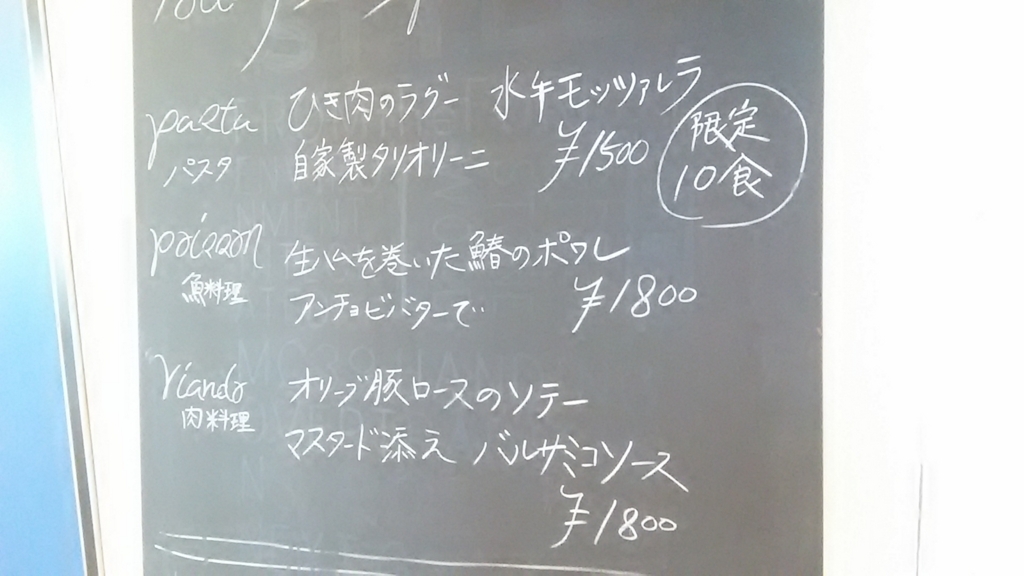 pasta ひき肉のラグー 水牛モッツァレラ
パスタ 自家製タリオリーニ ¥1500
限定
10食
poisson 生ハムを巻いた鰆のポワレ
魚料理 アンチョビバターで ¥1800
Viande オリーブ豚ロースのソテー
肉料理 マスタード添え バルサミコソース
¥1800